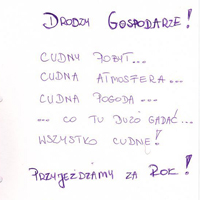 DRODZY GOSPODARZE!
CUDNY POBYT...
CUDNA ATMOSFERA...
CUDNA POGODA...
... CO TU DUŻO GADAĆ...
WSZYSTKO CUDNE!
PRZYJEŻDŻAMY ZA ROK!